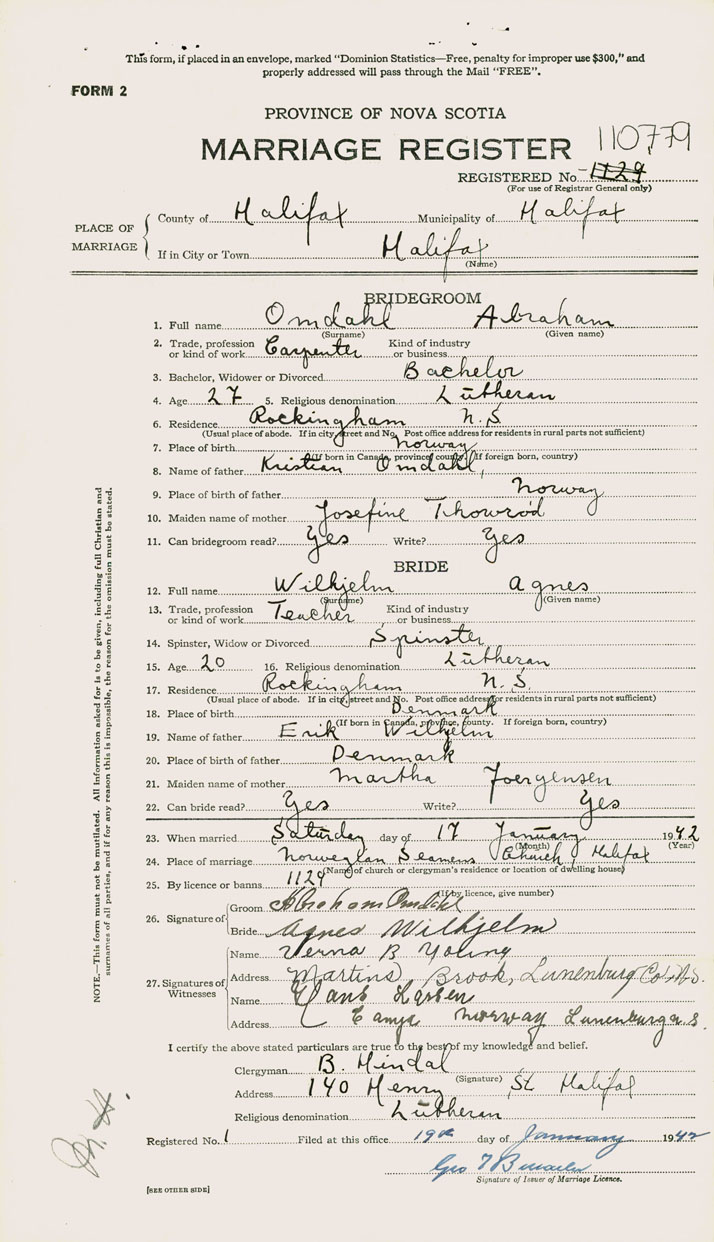 This form, if placed in an envelope, marked "Dominion Statistics—Free, penalty for improper use $300," and
properly addressed will pass through the Mail "FREE".
FORM 2
PROVINCE OF NOVA SCOTIA
MARRIAGE REGISTER 110779
REGISTERED No. 1129
(For use of Registrar General only)
PLACE OF MARRIAGE
County of Halifax Municipality of Halifax
If in City or Town Halifax
(Name)
BRIDEGROOM
1. Full name Omdahl Abraham
(Surname) (Given name)
2. Trade, profession or kind of work Carpenter Kind of industry or business
3. Bachelor, Widower or Divorced Bachelor
4. Age 27 5. Religious denomination Lutheran
6. Residence Rockingham N.S.
(Usual place of abode. If in city, street and No. Post office address for residents in rural parts not sufficient)
7. Place of birth Norway
(If born in Canada, province, county. If foreign born, country)
8. Name of father Kristian Omdahl,
9. Place of birth of father Norway
10. Maiden name of mother Josefine
11. Can bridegroom read? Yes Write? Yes
BRIDE
12. Full name Wilhjelm Agnes
(Surname) (Given name)
13. Trade, profession or kind of work Teacher Kind of industry or business
14. Spinster, Widow or Divorced Spinster
15. Age 20 16. Religious denomination Lutheran
17. Residence Rockingham N.S
(Usual place of abode. If in city, street and No. Post office address for residents in rural parts not sufficient)
18. Place of birth Denmark
(If born in Canada, province, county. If foreign born, country)
19. Name of father Erik Wilhjelm
20. Place of birth of father Denmark
21. Maiden name of mother Martha Joergensen
22. Can bride read? Yes Write? Yes
23. When married Saturday day of 17 January 1942
(Month) (Year)
24. Place of marriage Norwegian Seamens Church, Halifax
(Name of church or clergyman's residence or location of dwelling house)
25. By licence or banns 1129
(If by licence, give number)
26. Signature of
Groom Abraham Omdahl
Bride Agnes Wilhjelm
27. Signatures of Witnesses
Name Verna B Young
Address Martins Brook, Lunenburg Co. N.S.
Name Hans Larsen
Address Camp Norway Lunenburg N.S.
I certify the above stated particulars are true to the best of my knowledge and belief.
Clergyman B. Hindal
(Signature)
Address 140 Henry St Halifax
Religious denomination Lutheran
Registered No. 1 Filed at this office 19th day of January 1942
Geo
Signature of Issuer of Marriage Licence.
[SEE OTHER SIDE]
NOTE.—This form must not be mutilated. All information asked for is to be given, including full Christian and
surnames of all parties, and if for any reason this is impossible, the reason for the omission must be stated.